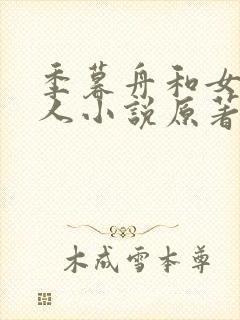 季暮舟和女
人小说原著
木成雪本尊